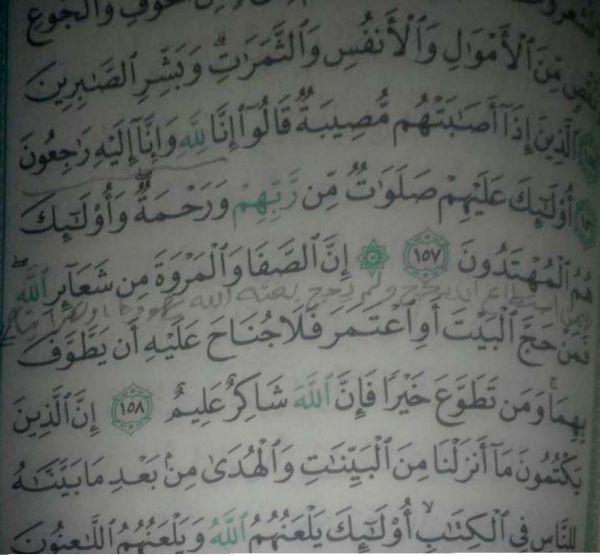 ٱلْخَوْفِ وَٱلْجُوعِ
مِّنَ ٱلْأَمْوَٰلِ وَٱلْأَنفُسِ وَٱلثَّمَرَٰتِ ۗ وَبَشِّرِ ٱلصَّٰبِرِينَ
ٱلَّذِينَ إِذَآ أَصَٰبَتْهُم مُّصِيبَةٌ قَالُوٓا۟ إِنَّا لِلَّهِ وَإِنَّآ إِلَيْهِ رَٰجِعُونَ
أُو۟لَٰٓئِكَ عَلَيْهِمْ صَلَوَٰتٌ مِّن رَّبِّهِمْ وَرَحْمَةٌ ۖ وَأُو۟لَٰٓئِكَ
هُمُ ٱلْمُهْتَدُونَ ١٥٧ ۞ إِنَّ ٱلصَّفَا وَٱلْمَرْوَةَ مِن شَعَآئِرِ ٱللَّهِ ۖ
فَمَنْ حَجَّ ٱلْبَيْتَ أَوِ ٱعْتَمَرَ فَلَا جُنَاحَ عَلَيْهِ أَن يَطَّوَّفَ
بِهِمَا ۚ وَمَن تَطَوَّعَ خَيْرًا فَإِنَّ ٱللَّهَ شَاكِرٌ عَلِيمٌ ١٥٨ إِنَّ ٱلَّذِينَ
يَكْتُمُونَ مَآ أَنزَلْنَا مِنَ ٱلْبَيِّنَٰتِ وَٱلْهُدَىٰ مِنۢ بَعْدِ مَا بَيَّنَّٰهُ
لِلنَّاسِ فِى ٱلْكِتَٰبِ ۙ أُو۟لَٰٓئِكَ يَلْعَنُهُمُ ٱللَّهُ وَيَلْعَنُهُمُ ٱللَّٰعِنُونَ